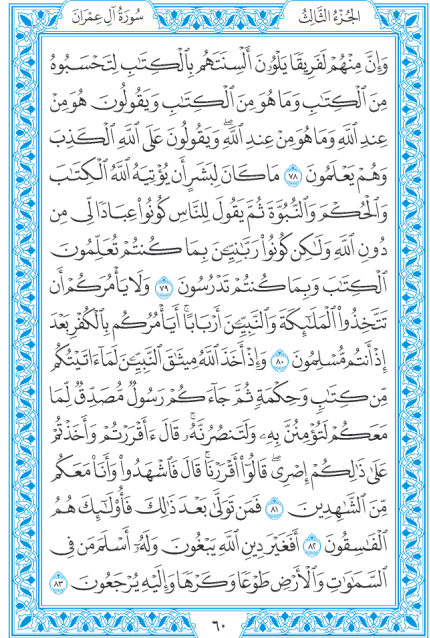 سُورَةُ آلِ عِمْرَانَ
الجُزْءُ الثَّالِثُ
وَإِنَّ مِنْهُمْ لَفَرِيقًا يَلْوُۥنَ أَلْسِنَتَهُم بِٱلْكِتَٰبِ لِتَحْسَبُوهُ
مِنَ ٱلْكِتَٰبِ وَمَا هُوَ مِنَ ٱلْكِتَٰبِ وَيَقُولُونَ هُوَ مِنْ
عِندِ ٱللَّهِ وَمَا هُوَ مِنْ عِندِ ٱللَّهِۖ وَيَقُولُونَ عَلَى ٱللَّهِ ٱلْكَذِبَ
وَهُمْ يَعْلَمُونَ ٧٨ مَا كَانَ لِبَشَرٍ أَن يُؤْتِيَهُ ٱللَّهُ ٱلْكِتَٰبَ
وَٱلْحُكْمَ وَٱلنُّبُوَّةَ ثُمَّ يَقُولَ لِلنَّاسِ كُونُوا۟ عِبَادًا لِّى مِن
دُونِ ٱللَّهِ وَلَٰكِن كُونُوا۟ رَبَّٰنِيِّۦنَ بِمَا كُنتُمْ تُعَلِّمُونَ
ٱلْكِتَٰبَ وَبِمَا كُنتُمْ تَدْرُسُونَ ٧٩ وَلَا يَأْمُرَكُمْ أَن
تَتَّخِذُوا۟ ٱلْمَلَٰٓئِكَةَ وَٱلنَّبِيِّۦنَ أَرْبَابًاۗ أَيَأْمُرُكُم بِٱلْكُفْرِ بَعْدَ
إِذْ أَنتُم مُّسْلِمُونَ ٨٠ وَإِذْ أَخَذَ ٱللَّهُ مِيثَٰقَ ٱلنَّبِيِّۦنَ لَمَآ ءَاتَيْتُكُم
مِّن كِتَٰبٍ وَحِكْمَةٍ ثُمَّ جَآءَكُمْ رَسُولٌ مُّصَدِّقٌ لِّمَا
مَعَكُمْ لَتُؤْمِنُنَّ بِهِۦ وَلَتَنصُرُنَّهُۥۚ قَالَ ءَأَقْرَرْتُمْ وَأَخَذْتُمْ
عَلَىٰ ذَٰلِكُمْ إِصْرِىۖ قَالُوٓا۟ أَقْرَرْنَاۚ قَالَ فَٱشْهَدُوا۟ وَأَنَا۠ مَعَكُم
مِّنَ ٱلشَّٰهِدِينَ ٨١ فَمَن تَوَلَّىٰ بَعْدَ ذَٰلِكَ فَأُو۟لَٰٓئِكَ هُمُ
ٱلْفَٰسِقُونَ ٨٢ أَفَغَيْرَ دِينِ ٱللَّهِ يَبْغُونَ وَلَهُۥٓ أَسْلَمَ مَن فِى
ٱلسَّمَٰوَٰتِ وَٱلْأَرْضِ طَوْعًا وَكَرْهًا وَإِلَيْهِ يُرْجَعُونَ ٨٣
٦٠